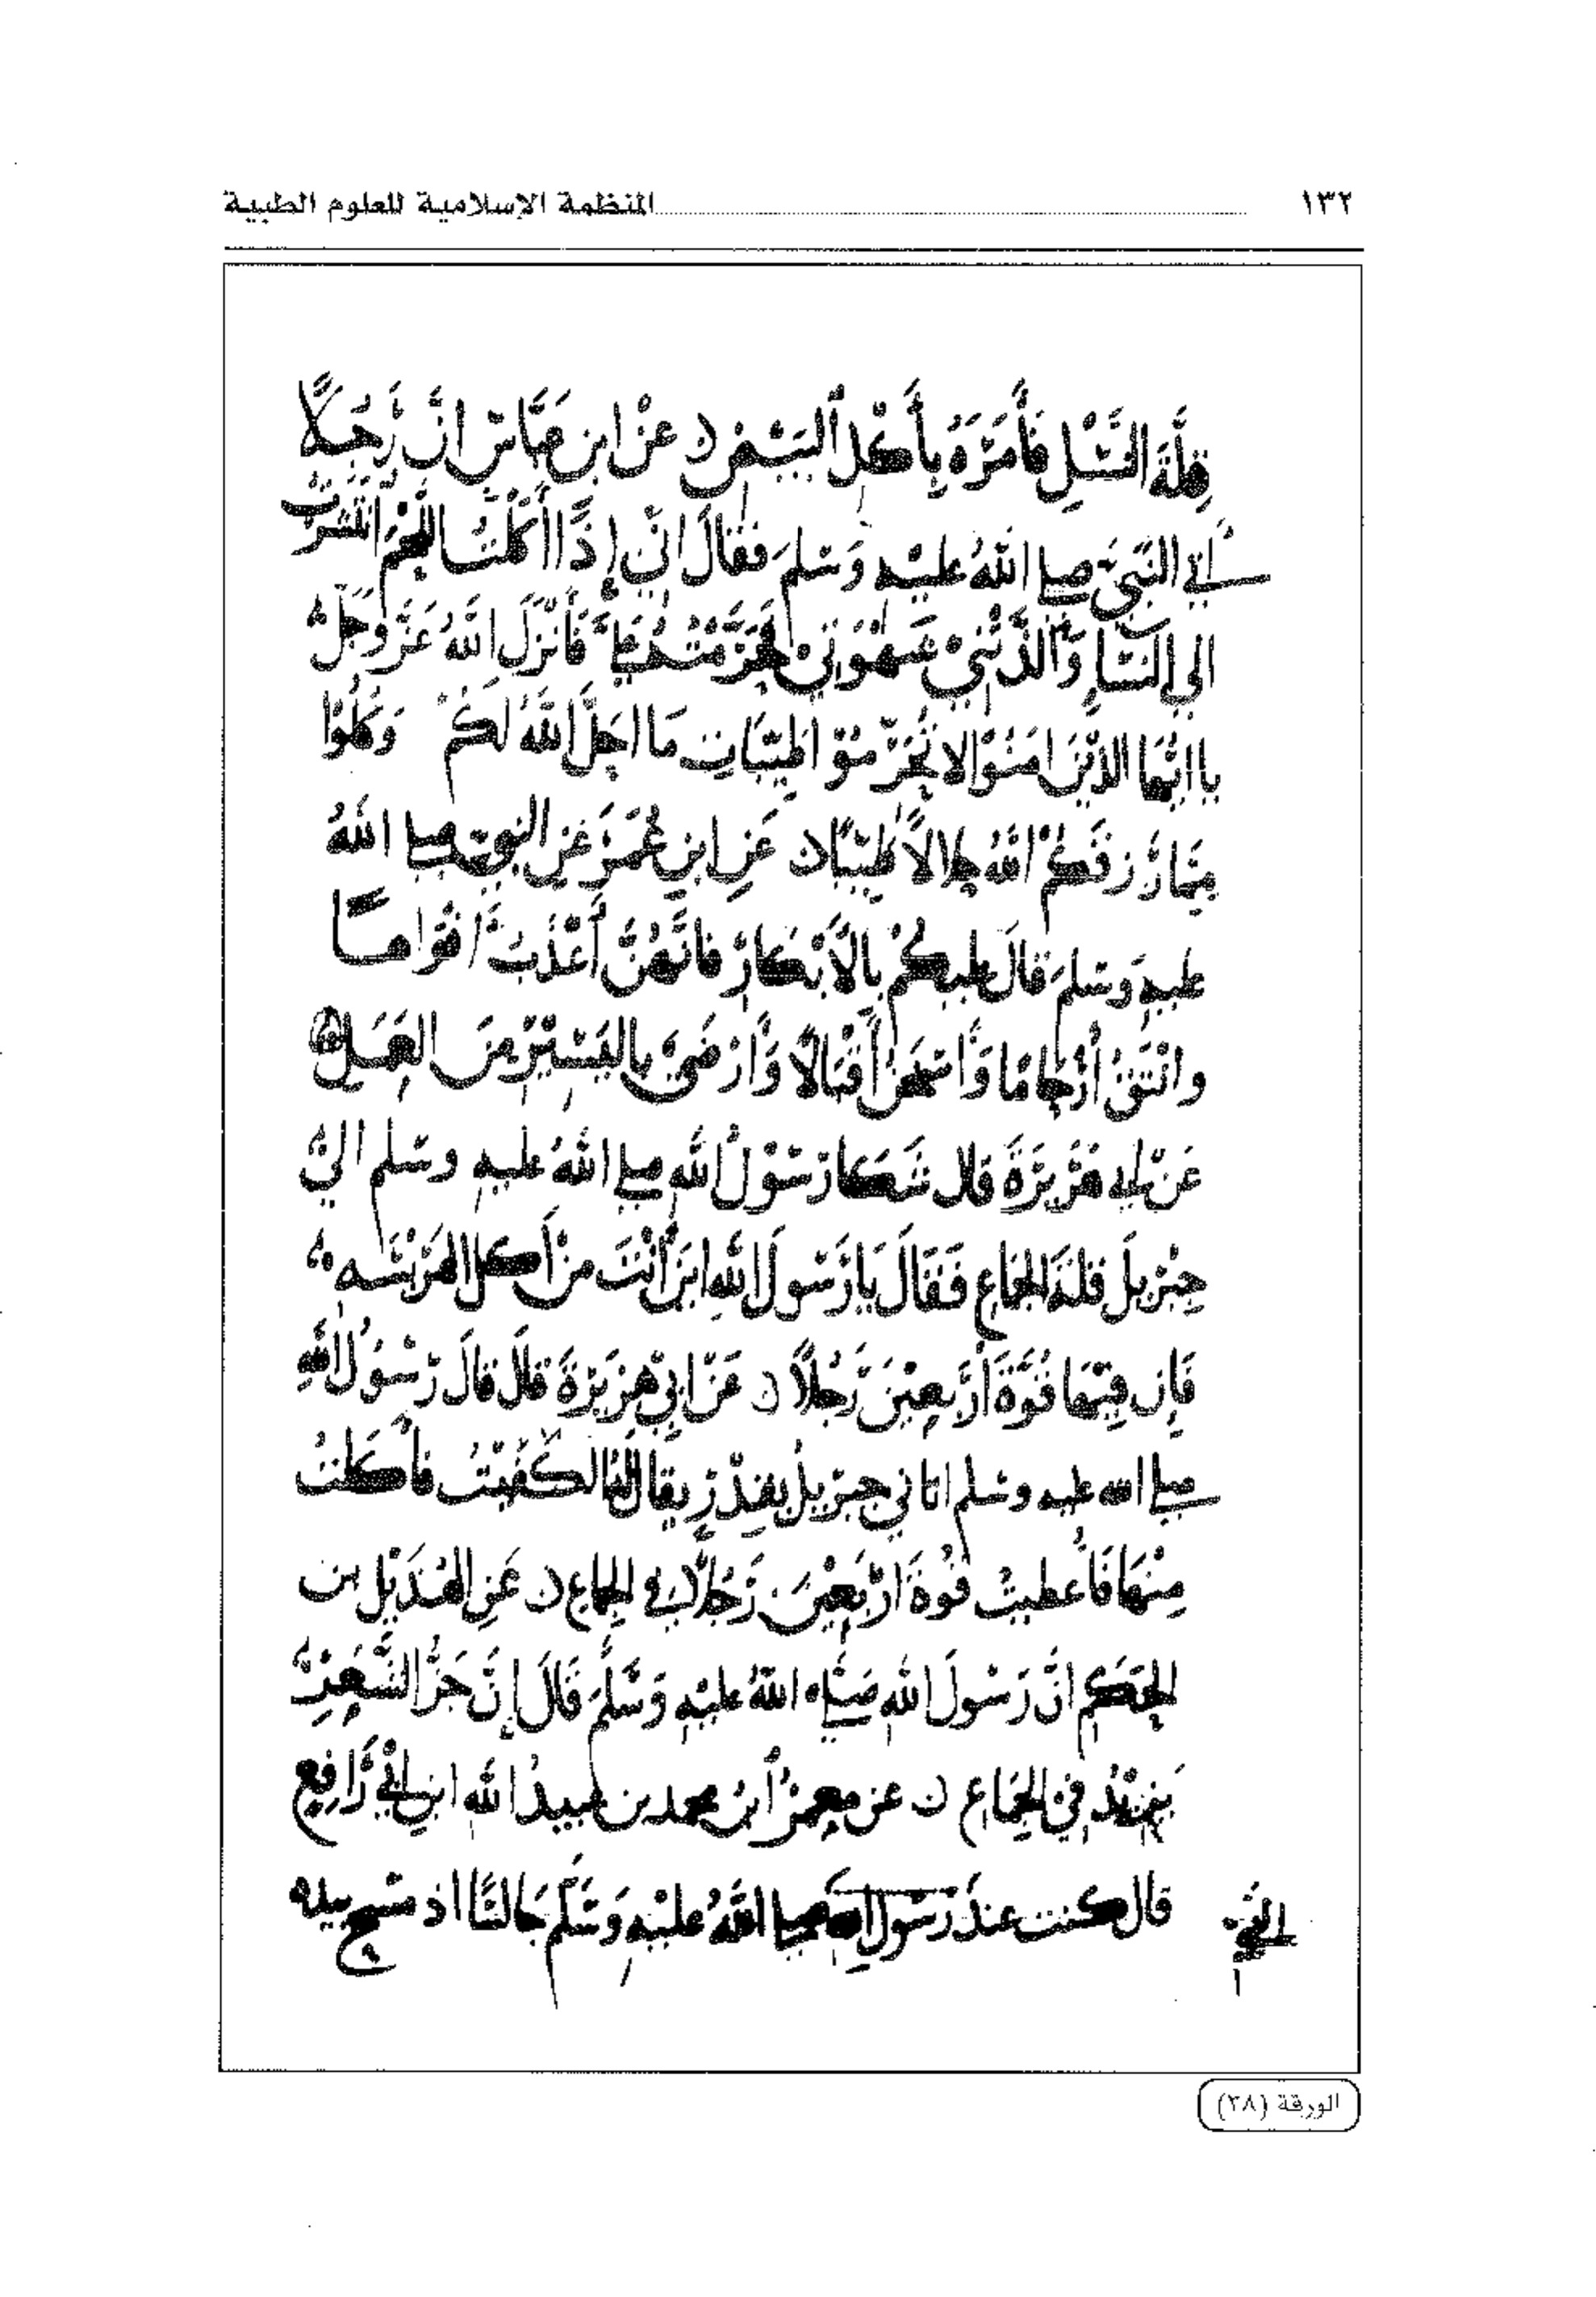 ١٣٢ المنظمة الإسلامية للعلوم الطبية
قِلَّةَ النَّسْلِ فَأَمَرَهُ بِأَكْلِ البَيْضِ ن عَنْ ابن عَبَّاسٍ انَّ رَجُلًا
أتي النَّبيَّ صلى اللهُ عليه وَسَلمَ فقالَ انّي إِذَا أَكَلْتُ اللحْمَ انْتَشَرْتُ
الي النسَاءِ وَأَخَذَتْنِيْ شَهْوَتي فَحَرَّمْتُ اللحْمَ فَأَنْزَلَ اللهُ عَزَّ وَجَلَّ
يا ايُّهَا الذينَ امَنُوْا لا تُحَرِّمُوْا طَيِّبَاتِ مَا احَلَّ اللهُ لَكُمْ وَكُلُوْا
مِمَّا رَزَقَكُمْ اللهُ حلالاً طَيِّبًا ن عَنِ ابنِ عُمَرَ عَنِ النبي صلى اللهُ
عليهِ وَسَلمَ قالَ عليكُمْ بِالأَبْكَارِ فانَّهُنَّ أَعْذَبُ افْوَاهًا
وانْتَقُ أَرْحَامًا وَأَسْخَنُ أَقْبَالًا وَأَرْضَى بِاليَسِيْرِ مِنَ العَمَلِ
عَنْ ابي هُرَيْرَةَ قال شَكَا رَسُوْلُ اللهِ صلى اللهُ عليهِ وسَلم الى
جِبْرِيلَ قلةَ الجماعِ فَقَالَ يَا رَسُولَ اللهِ ايْنَ أَنْتَ مِنْ أَكل الهَرِيْسَه
فَإِن فِيْهَا قُوَّةَ أَرْبَعِيْنَ رَجُلًا ن عَنْ ابِي هُرَيْرَةَ قالَ قالَ رَسُوُلُ اللهِ
صلى الله عليه وسَلم اتاني جبْرِيلُ بقِدْرٍ يقَالُ لهَا الكَفِيْتُ فأَكَلتُ
مِنْهَا فَأُعطيتُ قُوةَ ارْبَعِيْنَ رَجُلًا في الجماع ن عَنِ الهُذَيْلِ بن
الحَكَم انَّ رَسُولَ اللهِ صَلى اللهُ عليْهِ وَسَلَّمَ قَالَ إِنَّ جَزَّ الشَّعْرِ
يَزِيْدُ فِي الجِمَاعِ ن عن مَعْمَرُ أبنُ محمد بن عبيدُ الله ابنِ ابِي رَافِعٍ
قال كنت عندَ رَسُولِ الله صلى اللهُ عليْهِ وَسَلَّمَ جَالسًا اذ مسَح بيده
الورقة (٣٨)